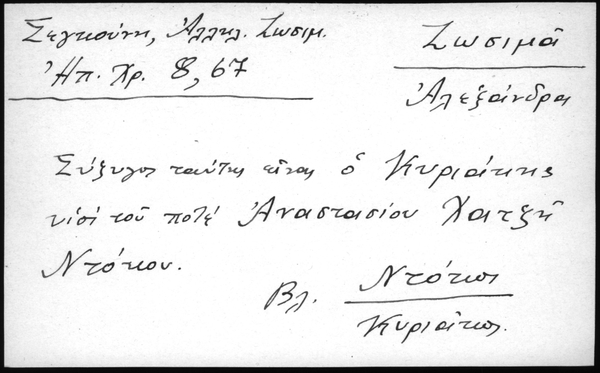 Σεγκούνη, Ἀλληλ. Ζωσιμ.
Ἠπ. Χρ. 8, 67
Ζωσιμᾶ
Ἀλεξάνδρα
Σύζυγος ταύτης εἶναι ὁ Κυριάκης
υἱὸς τοῦ ποτέ Ἀναστασίου Χατζῆ
Ντόκου.
Βλ. Ντόκος
Κυριάκος.